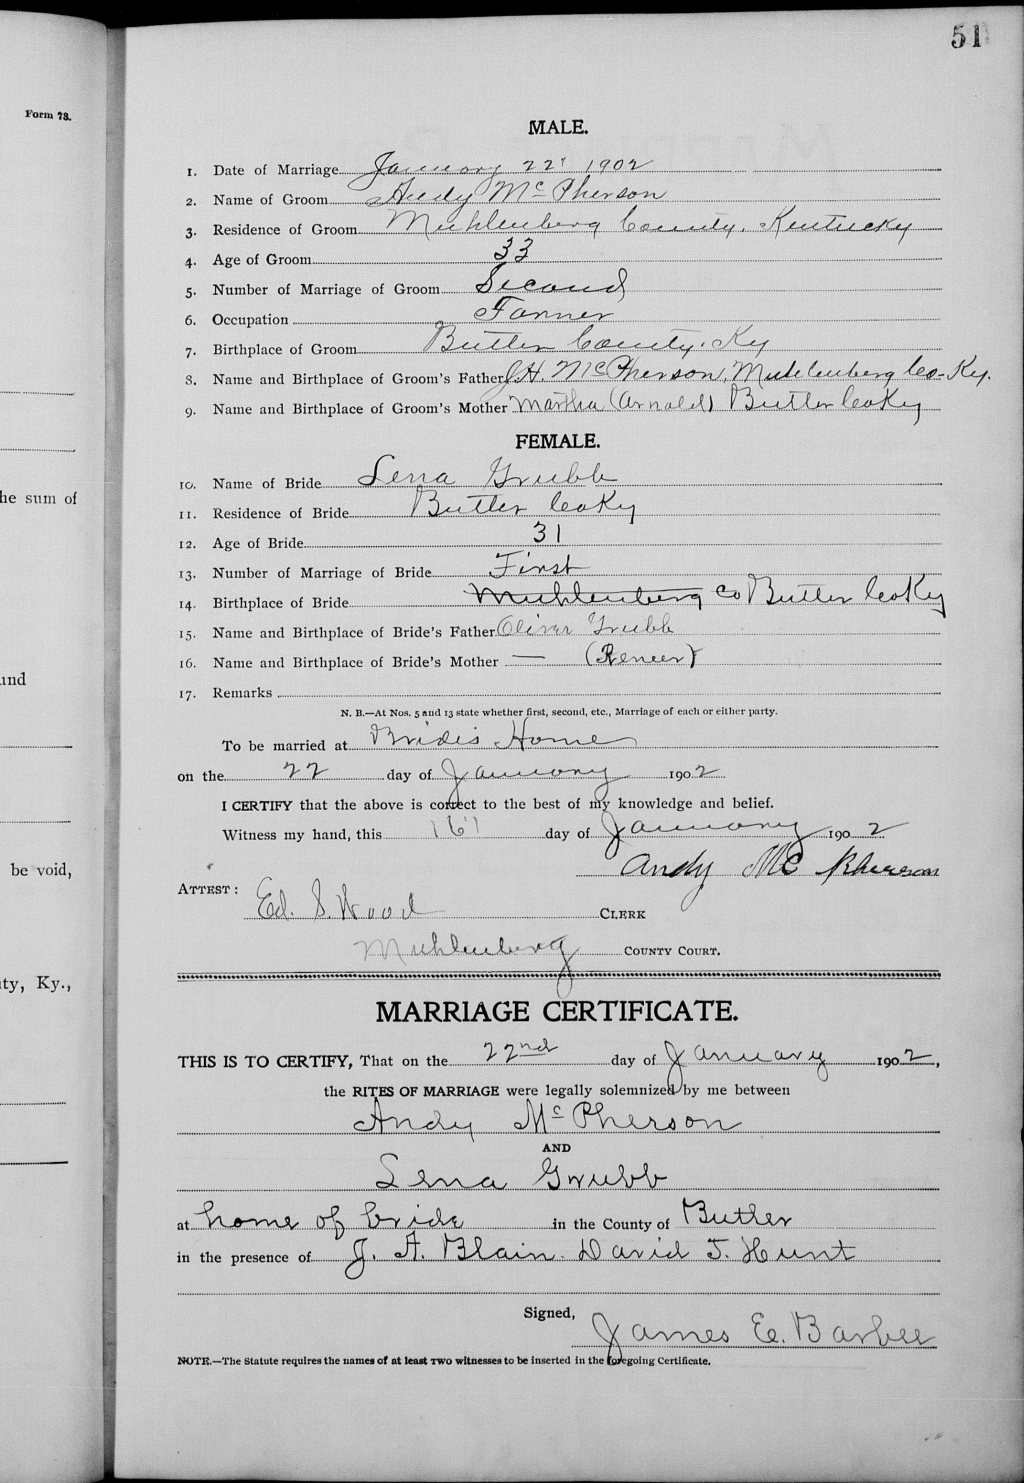 51
Form 73.
he sum of
und
be void,
ty, Ky.,
MALE.
1. Date of Marriage January 22' 1902
2. Name of Groom Andy McPherson
3. Residence of Groom Muhlenberg County, Kentucky
4. Age of Groom 33
5. Number of Marriage of Groom Second
6. Occupation Farmer
7. Birthplace of Groom Butler County. Ky
8. Name and Birthplace of Groom's Father J.H. McPherson, Muhlenberg Co-Ky.
9. Name and Birthplace of Groom's Mother Martha (Arnold) Butler CoKy
FEMALE.
10. Name of Bride Lena Grubb
11. Residence of Bride Butler CoKy
12. Age of Bride 31
13. Number of Marriage of Bride First
14. Birthplace of Bride Muhlenberg Co Butler CoKy
15. Name and Birthplace of Bride's Father Oliver Grubb
16. Name and Birthplace of Bride's Mother — (Reneer)
17. Remarks
N. B.—At Nos. 5 and 13 state whether first, second, etc., Marriage of each or either party.
To be married at Bride's Home
on the 22 day of January 1902
I CERTIFY that the above is correct to the best of my knowledge and belief.
Witness my hand, this 16" day of January 1902
Andy McPherson
ATTEST:
Ed. S. Wood CLERK
Muhlenberg COUNTY COURT.
MARRIAGE CERTIFICATE.
THIS IS TO CERTIFY, That on the 22nd day of January 1902,
the RITES OF MARRIAGE were legally solemnized by me between
Andy McPherson
AND
Lena Grubb
at home of bride in the County of Butler
in the presence of J. A. Blain. David T. Hunt
Signed,
James E. Barbee
NOTE.—The Statute requires the names of at least TWO witnesses to be inserted in the foregoing Certificate.